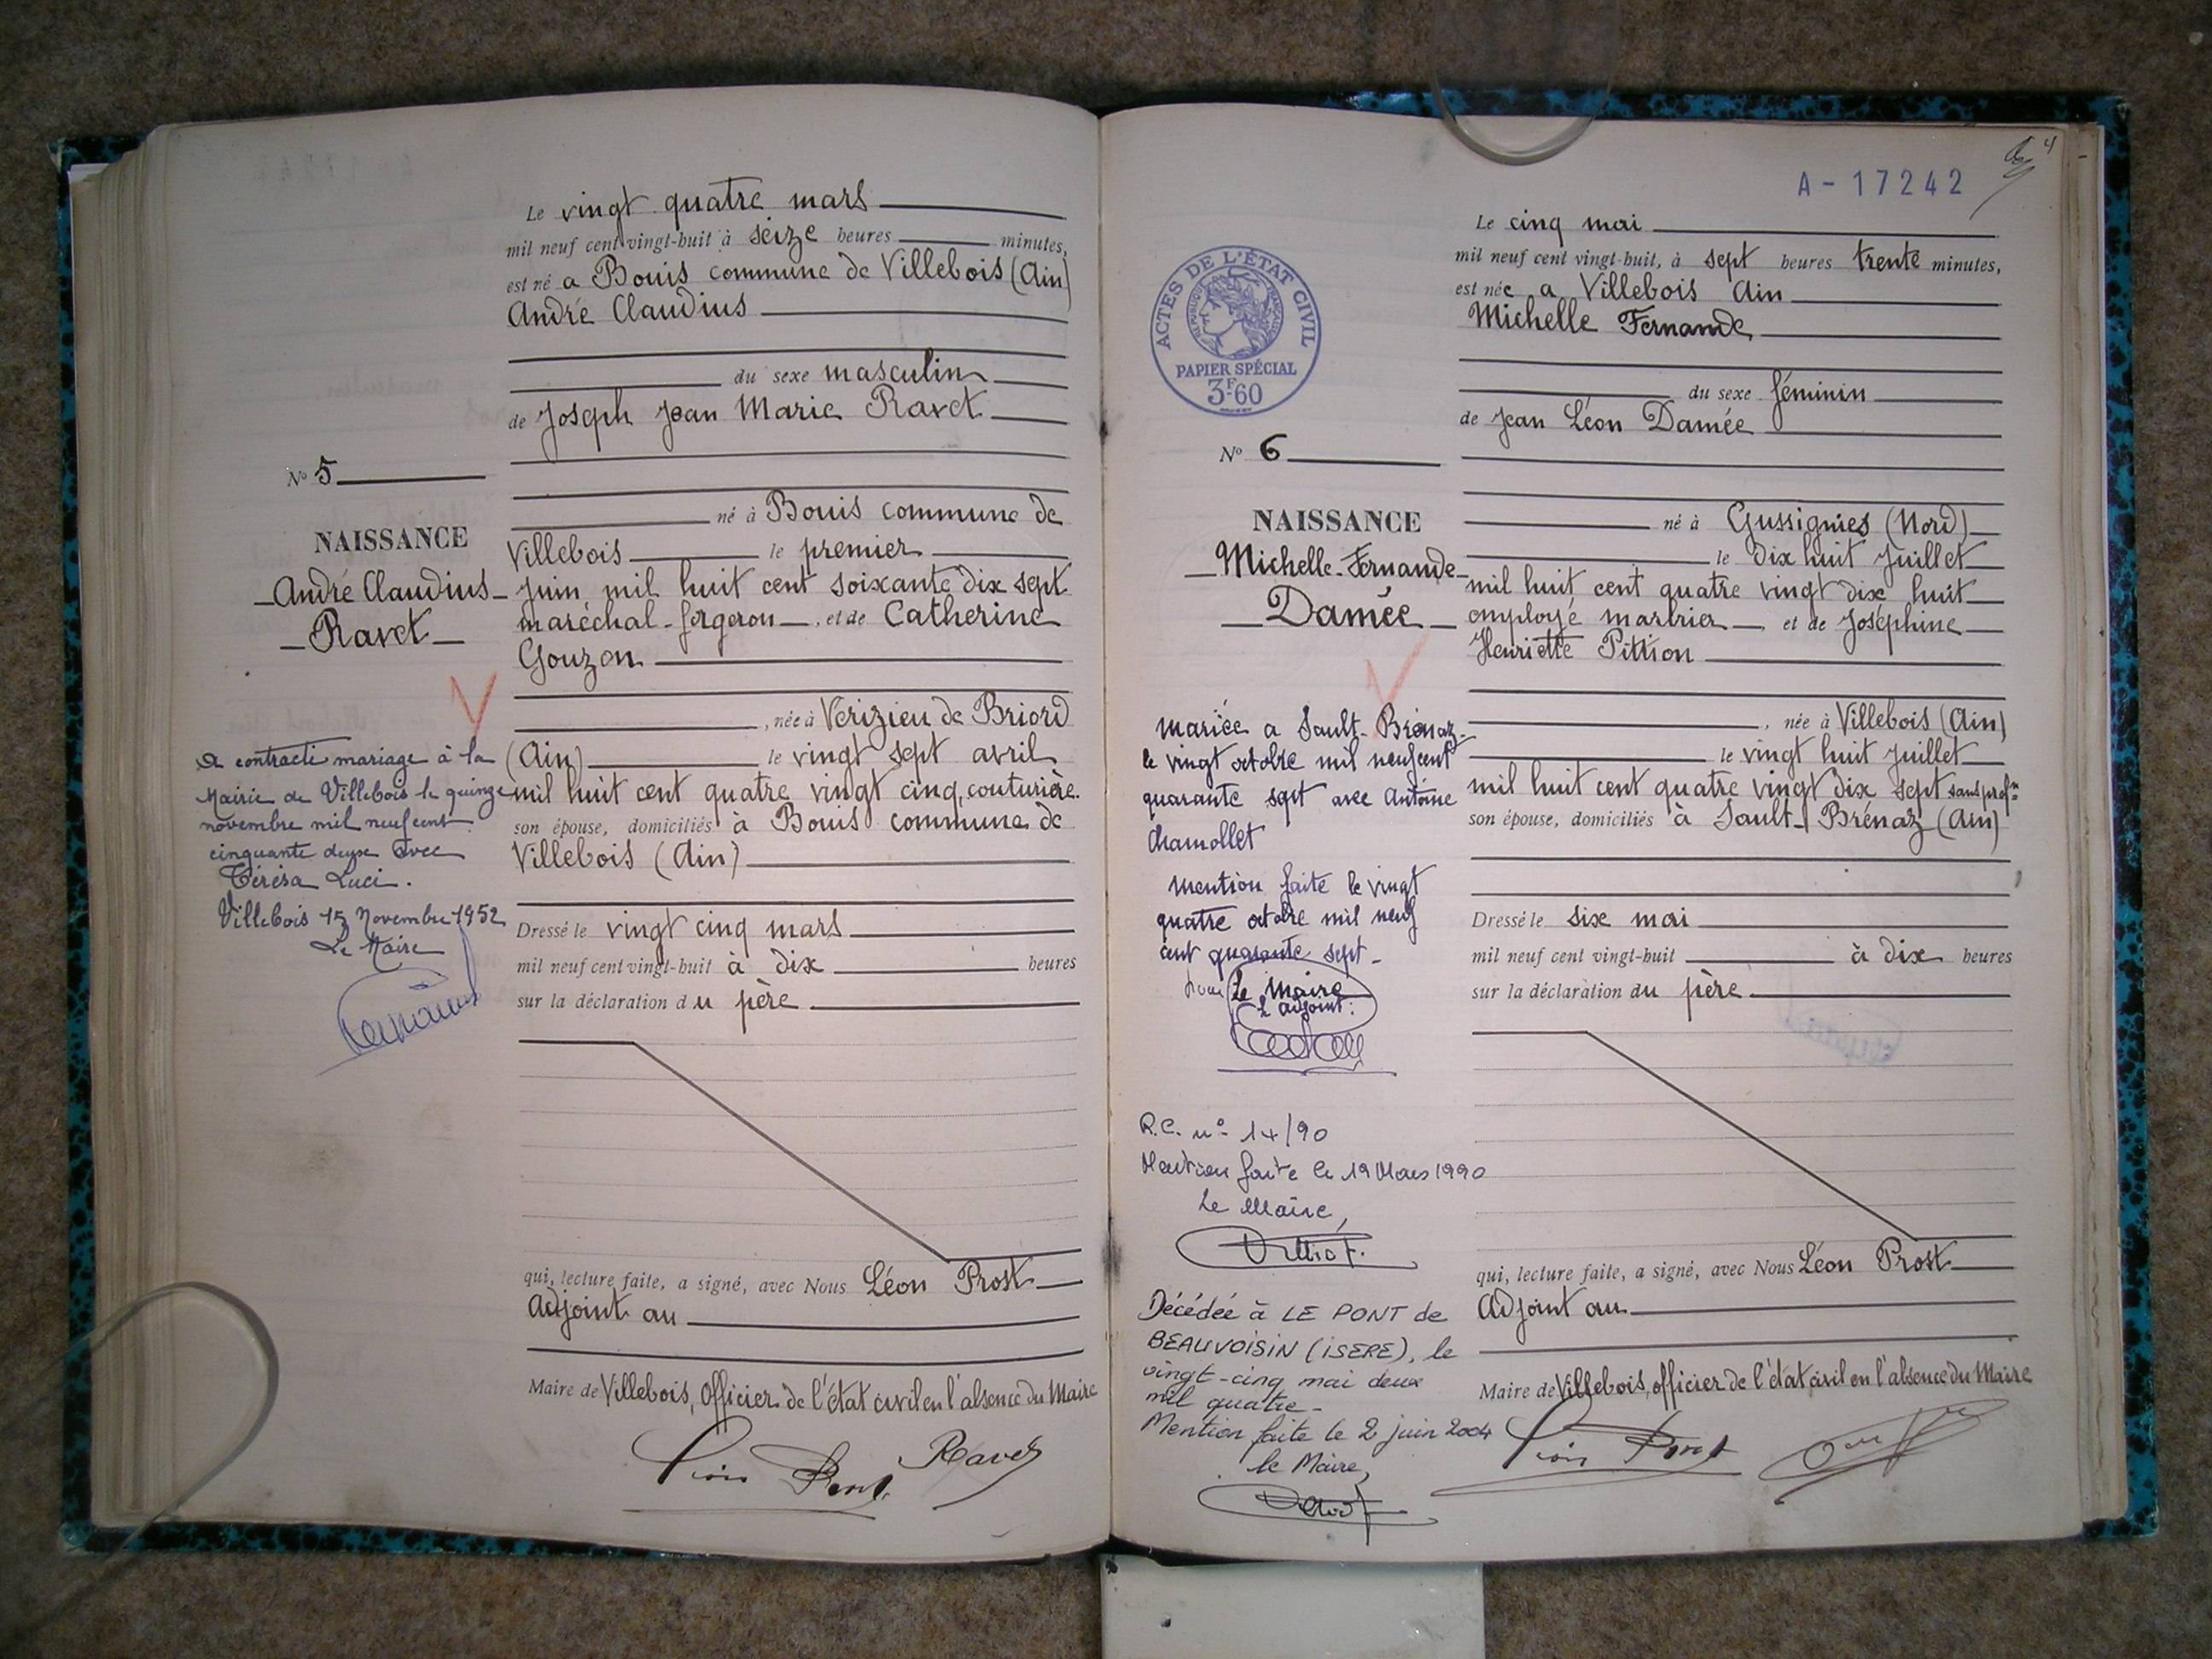 Le vingt quatre mars
mil neuf cent vingt-huit à seize heures minutes,
est né a Bouis commune de Villebois (Ain)
André Claudius
du sexe masculin
de Joseph Jean Marie Ravet
N° 5
NAISSANCE
André Claudius
Ravet
né à Bouis commune de
Villebois le premier
Juin mil huit cent soixante dix sept
maréchal-forgeron, et de Catherine
Gouzon
, née à Verizieu de Briord
(Ain) le vingt sept avril
mil huit cent quatre vingt cinq, couturière.
son épouse, domiciliés à Bouis commune de
Villebois (Ain)
A contracté mariage à la
Mairie de Villebois le quinze
novembre mil neuf cent
cinquante deux avec
Térésa Luci.
Villebois 15 Novembre 1952
Le Maire
Dressé le vingt cinq mars
mil neuf cent vingt-huit à dix heures
sur la déclaration du père
qui, lecture faite, a signé, avec Nous Léon Prost
Adjoint au
Maire de Villebois, Officier de l'état civil en l'absence du Maire
Léon Prost Ravet
A-17242
4
Le cinq mai
mil neuf cent vingt-huit, à sept heures trente minutes,
est née a Villebois Ain
Michelle Fernande
du sexe féminin
de Jean Léon Damée
ACTES DE L'ÉTAT CIVIL
RÉPUBLIQUE FRANÇAISE
PAPIER SPÉCIAL
3F60
N° 6
NAISSANCE
Michelle-Fernande
Damée
né à Gussignies (Nord)
le dix huit Juillet
mil huit cent quatre vingt dix huit
employé marbrier, et de Joséphine
Henriette Pittion
, née à Villebois (Ain)
le vingt huit Juillet
mil huit cent quatre vingt dix sept sans profon
son épouse, domiciliés à Sault-Brénaz (Ain)
mariée a Sault-Brénaz
le vingt octobre mil neuf cent
quarante sept avec Antoine
Chamollet
Mention faite le vingt
quatre octobre mil neuf
cent quarante sept
Pour Le Maire
L'adjoint:
R.C. n° 14/90
Mention faite le 19 Mars 1990
Le Maire,
Décédée à LE PONT de
BEAUVOISIN (ISERE), le
vingt-cinq mai deux
mil quatre-
Mention faite le 2 juin 2004
le Maire,
Dressé le six mai
mil neuf cent vingt-huit à dix heures
sur la déclaration du père
qui, lecture faite, a signé, avec Nous Léon Prost
Adjoint au
Maire de Villebois, officier de l'état civil en l'absence du Maire
Léon Prost